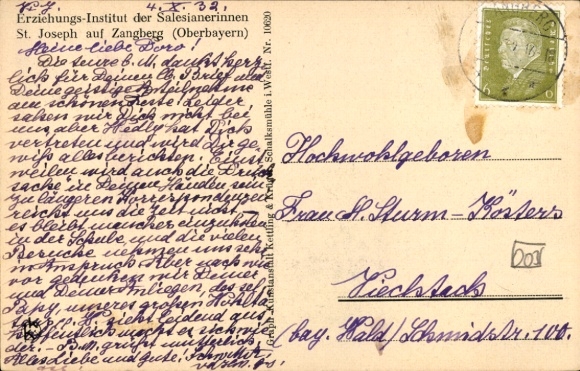 V. J. 4. X. 32.
Erziehungs-Institut der Salesianerinnen
St. Joseph auf Zangberg (Oberbayern)
Meine liebe Doro!
Die teure b. M. dankt herz
lich für Deinen lb. Brief und
Deine geistige Anteilnahme
am schönen Feste! Leider
sahen wir Dich nicht bei
uns, aber Hedly hat Dich
vertreten und wird dir ge
wiß alles berichten. Einst
weilen wird auch die Druck
sache in Deinen Händen sein
zu längeren Korrespondenzen
reicht uns die Zeit nicht
es bleibt mancher einzuholen
in der Schule, und die vielen
Besuche nehmen uns sehr
in Anspruch. Aber nach wie
vor gedenken wir Deiner
und Deiner Anliegen, des sel.
Papy, unseres großen Wohltä
ters. H. H. sieht leidend aus
hoffentlich macht er sich wie
der. B. M. grüßt mütterlich,
Alles Liebe und Gute!
Graph. Kunstanstalt Kettling & Krüger, Schalksmühle i. Westf. Nr. 10620
Deutsches Reich
6 6
Hochwohlgeboren
Frau H. Sturm-Kösters
203
Viechtach
(bay. Wald/Schmidstr. 100.